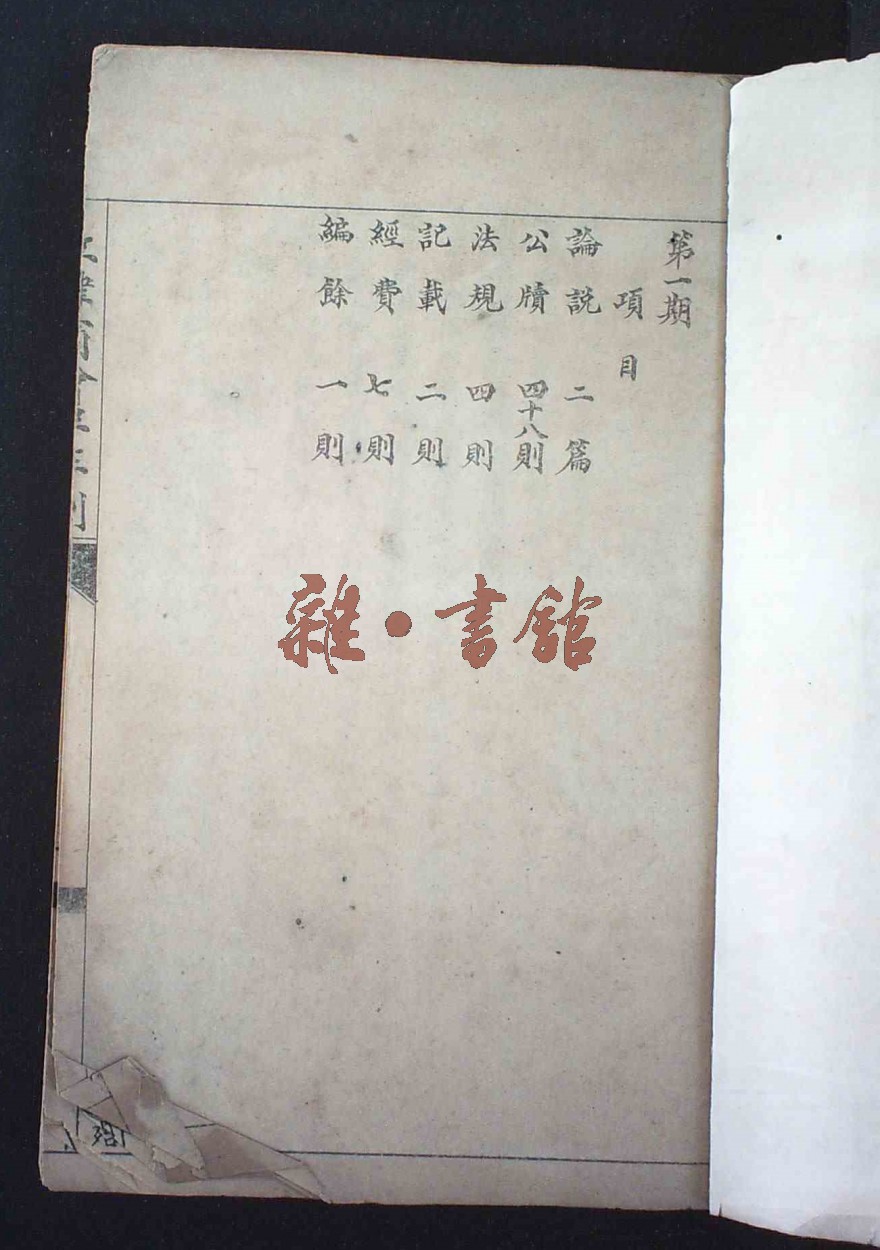 第一期
項目
論説 二篇
公牘 四十八則
法規 四則
記載 二則
經費 七則
編餘 一則
雜·書館